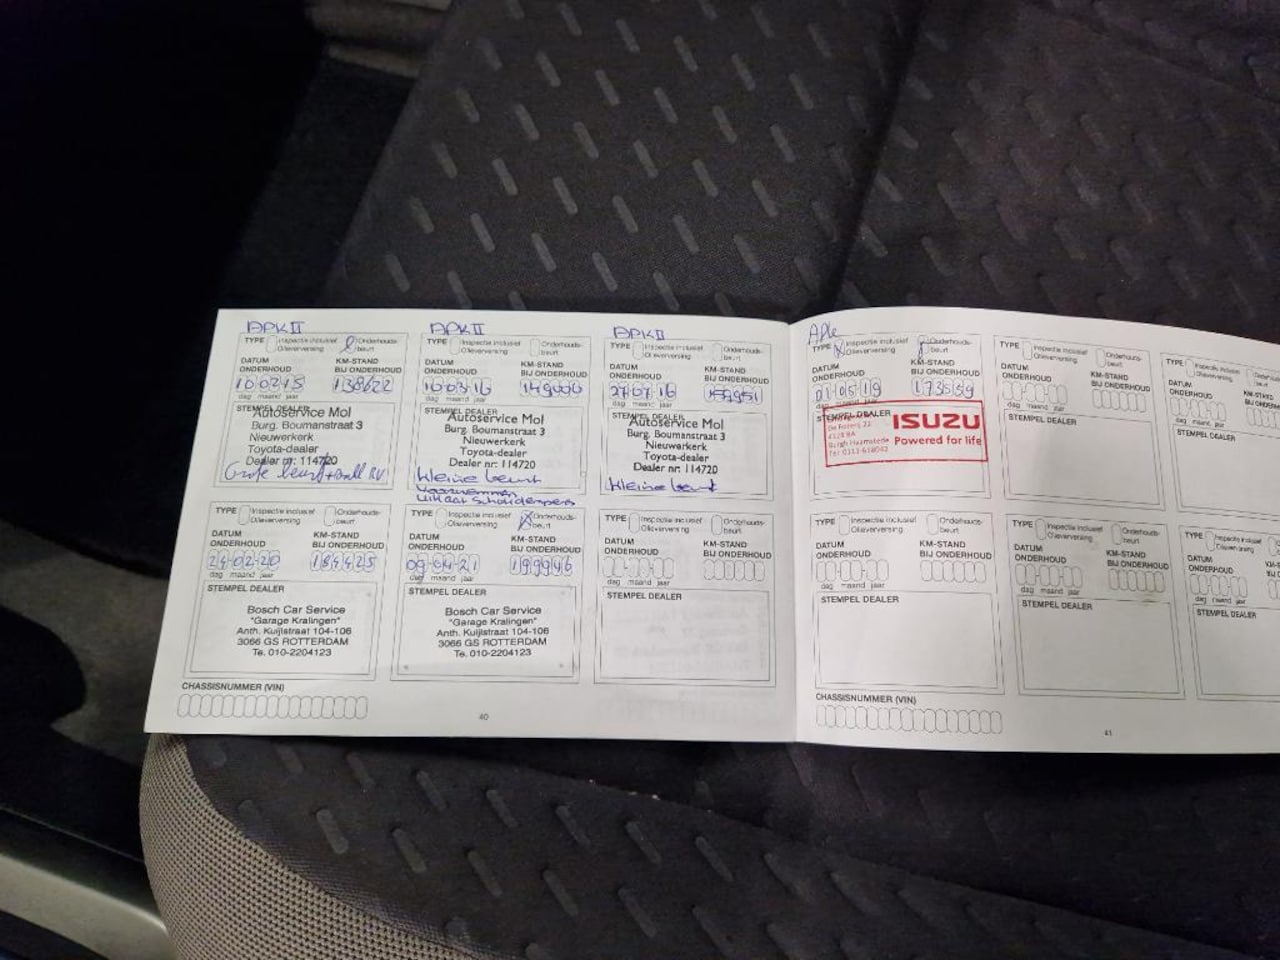 APK II
TYPE Inspectie inclusief Olieverversing Onderhouds-beurt
DATUM ONDERHOUD KM-STAND BIJ ONDERHOUD
10 02 15 138622
dag maand jaar
STEMPEL DEALER
Autoservice Mol
Burg. Boumanstraat 3
Nieuwerkerk
Toyota-dealer
Dealer nr: 114720
Grote beurt
APK II
TYPE Inspectie inclusief Olieverversing Onderhouds-beurt
DATUM ONDERHOUD KM-STAND BIJ ONDERHOUD
10 03 16
dag maand jaar
STEMPEL DEALER
Autoservice Mol
Burg. Boumanstraat 3
Nieuwerkerk
Toyota-dealer
Dealer nr: 114720
kleine beurt
APK II
TYPE Inspectie inclusief Olieverversing Onderhouds-beurt
DATUM ONDERHOUD KM-STAND BIJ ONDERHOUD
27 07 16
dag maand jaar
STEMPEL DEALER
Autoservice Mol
Burg. Boumanstraat 3
Nieuwerkerk
Toyota-dealer
Dealer nr: 114720
kleine beurt
TYPE Inspectie inclusief Olieverversing Onderhouds-beurt
DATUM ONDERHOUD KM-STAND BIJ ONDERHOUD
24 02 20 184425
dag maand jaar
STEMPEL DEALER
Bosch Car Service
"Garage Kralingen"
Anth. Kuijlstraat 104-106
3066 GS ROTTERDAM
Te. 010-2204123
TYPE Inspectie inclusief Olieverversing Onderhouds-beurt
DATUM ONDERHOUD KM-STAND BIJ ONDERHOUD
09 04 21 199946
dag maand jaar
STEMPEL DEALER
Bosch Car Service
"Garage Kralingen"
Anth. Kuijlstraat 104-106
3066 GS ROTTERDAM
Te. 010-2204123
TYPE Inspectie inclusief Olieverversing Onderhouds-beurt
DATUM ONDERHOUD KM-STAND BIJ ONDERHOUD
dag maand jaar
STEMPEL DEALER
CHASSISNUMMER (VIN)
40
TYPE Inspectie inclusief Olieverversing Onderhouds-beurt
DATUM ONDERHOUD KM-STAND BIJ ONDERHOUD
01 05 19 173559
dag maand jaar
STEMPEL DEALER
ISUZU
Powered for life
Burgh Haamstede
TYPE Inspectie inclusief Olieverversing Onderhouds-beurt
DATUM ONDERHOUD KM-STAND BIJ ONDERHOUD
dag maand jaar
STEMPEL DEALER
TYPE Inspectie inclusief Olieverversing
DATUM ONDERHOUD
dag maand jaar
STEMPEL DEALER
TYPE Inspectie inclusief Olieverversing Onderhouds-beurt
DATUM ONDERHOUD KM-STAND BIJ ONDERHOUD
dag maand jaar
STEMPEL DEALER
TYPE Inspectie inclusief Olieverversing Onderhouds-beurt
DATUM ONDERHOUD KM-STAND BIJ ONDERHOUD
dag maand jaar
STEMPEL DEALER
TYPE Inspectie inclusief Olieverversing
DATUM ONDERHOUD
dag maand jaar
STEMPEL DEALER
CHASSISNUMMER (VIN)
41